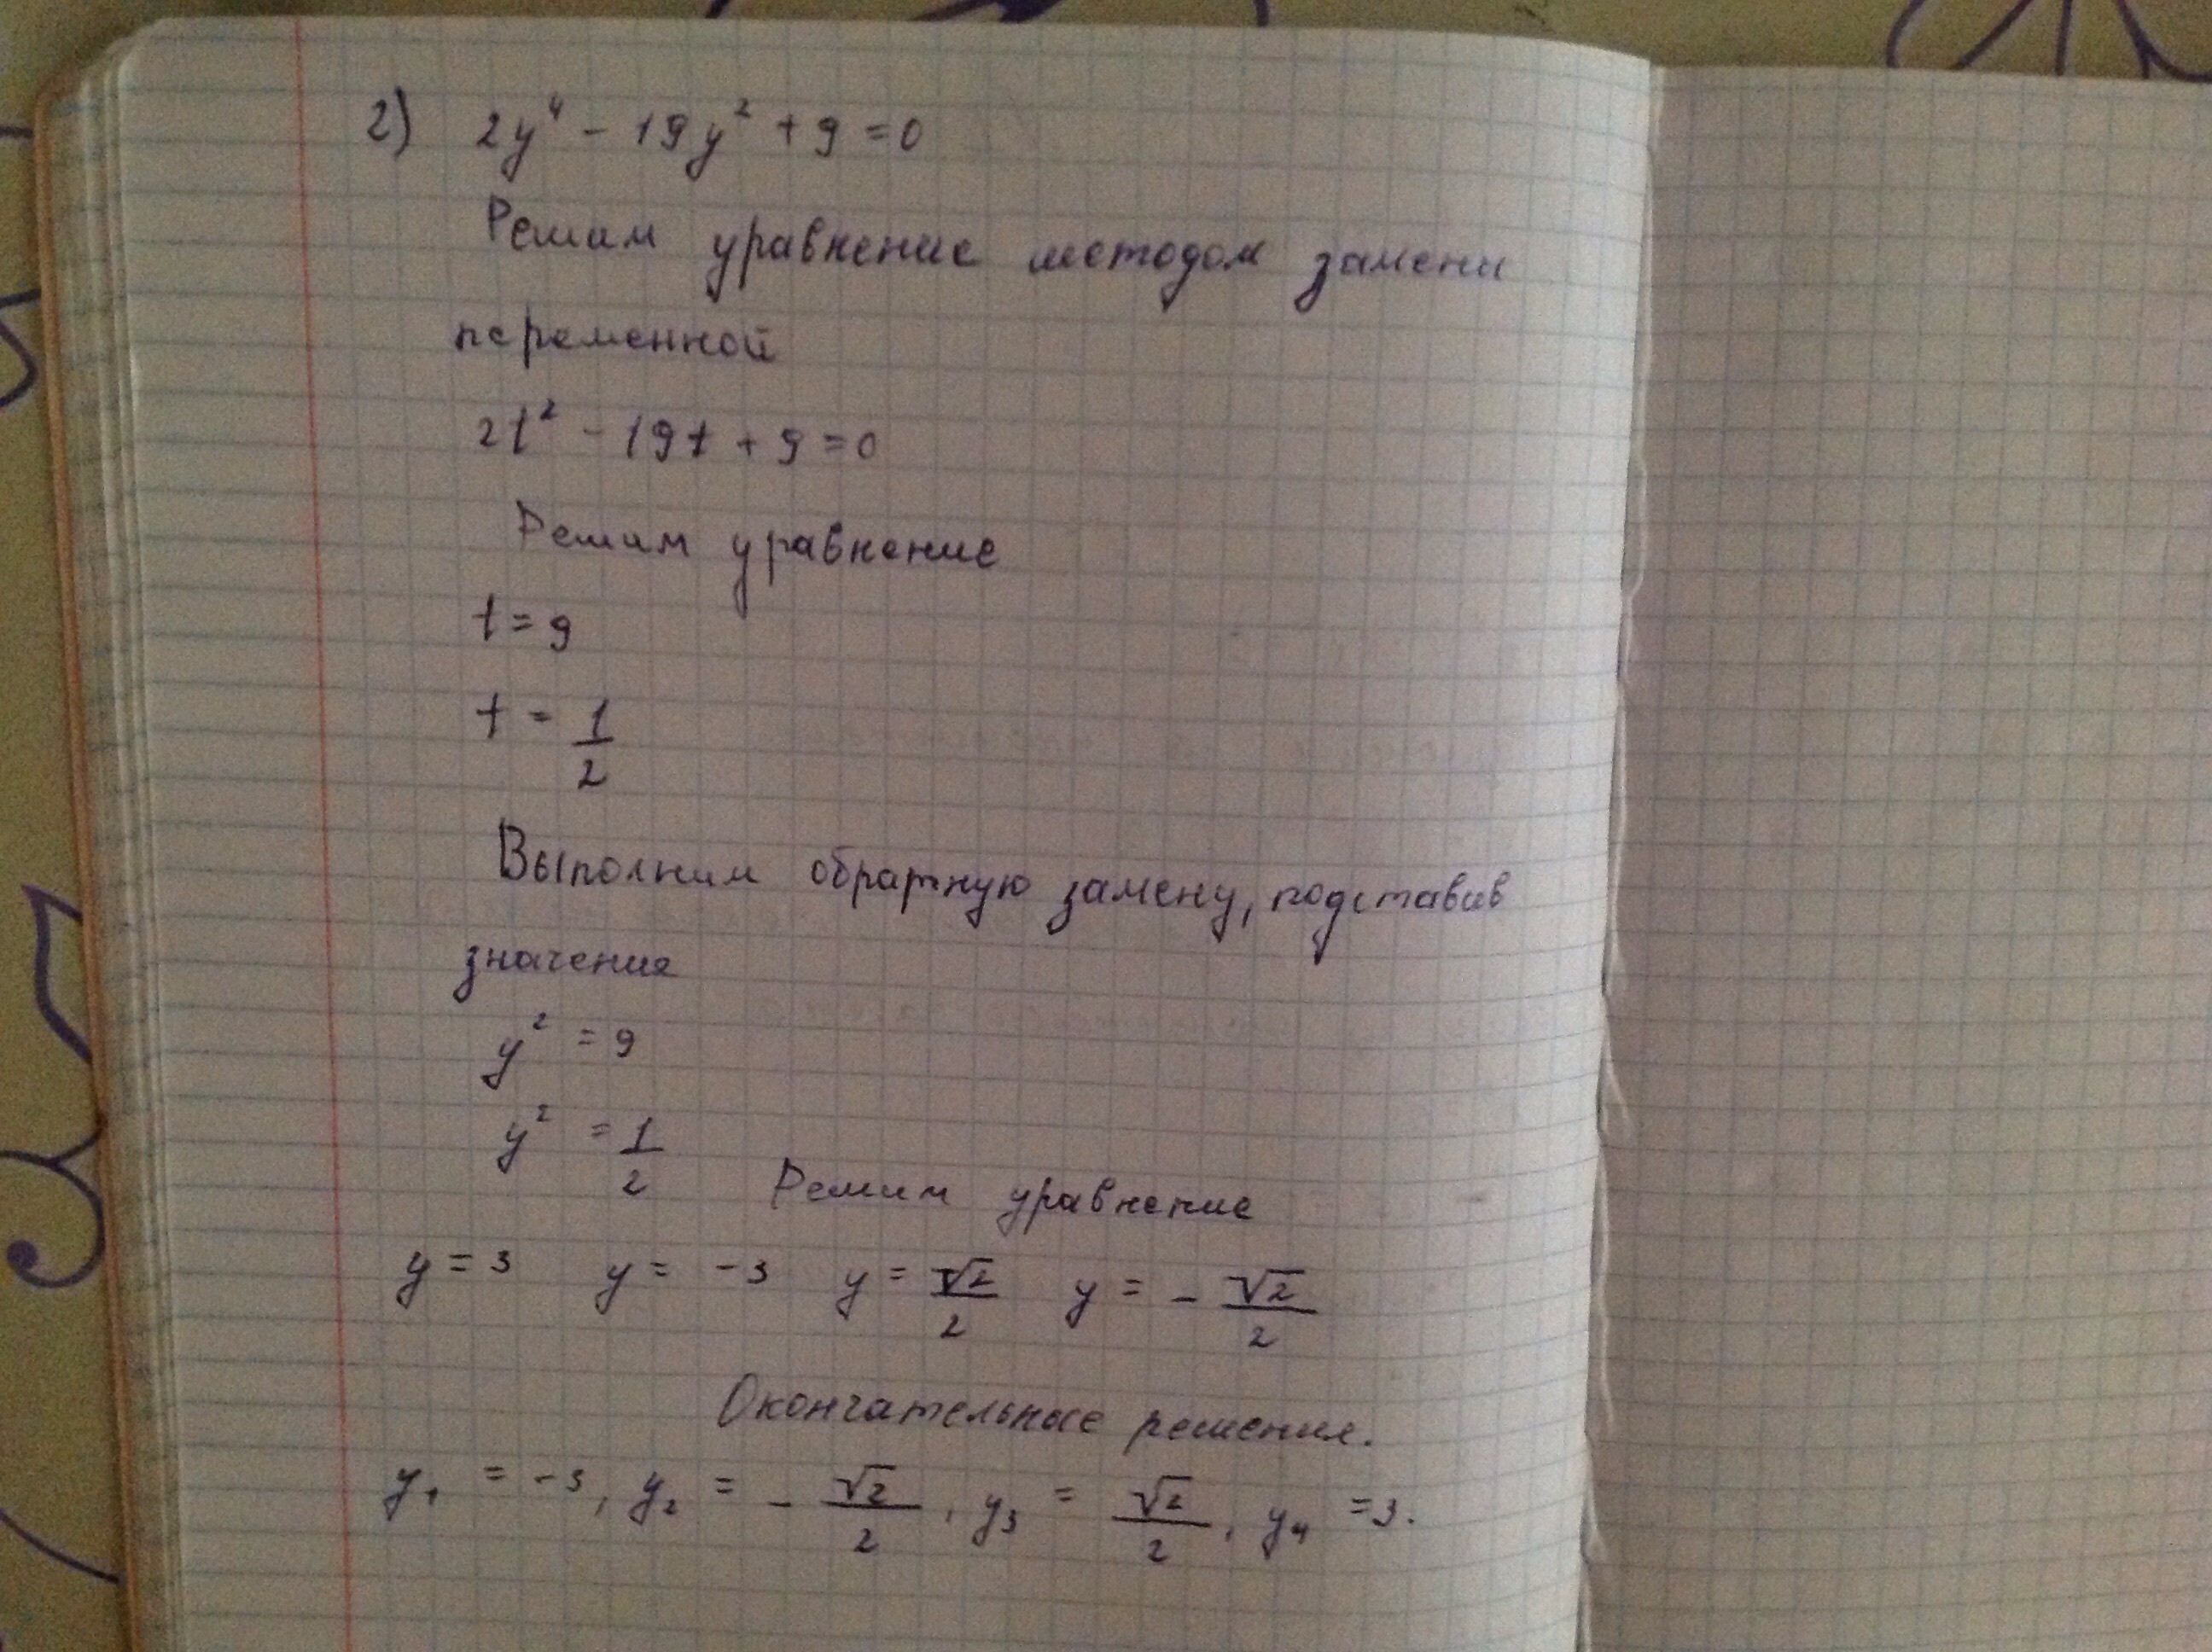 2) 2y⁴ - 19y² + 9 = 0
Решим уравнение методом замени
переменной
2t² - 19t + 9 = 0
Решим уравнение
t = 9
t = 1/2
Выполним обратную замену, подставив
значения
y² = 9
y² = 1/2
Решим уравнение
y = 3 y = -3 y = √2/2 y = - √2/2
Окончательные решения.
y₁ = -3, y₂ = - √2/2, y₃ = √2/2, y₄ = 3.